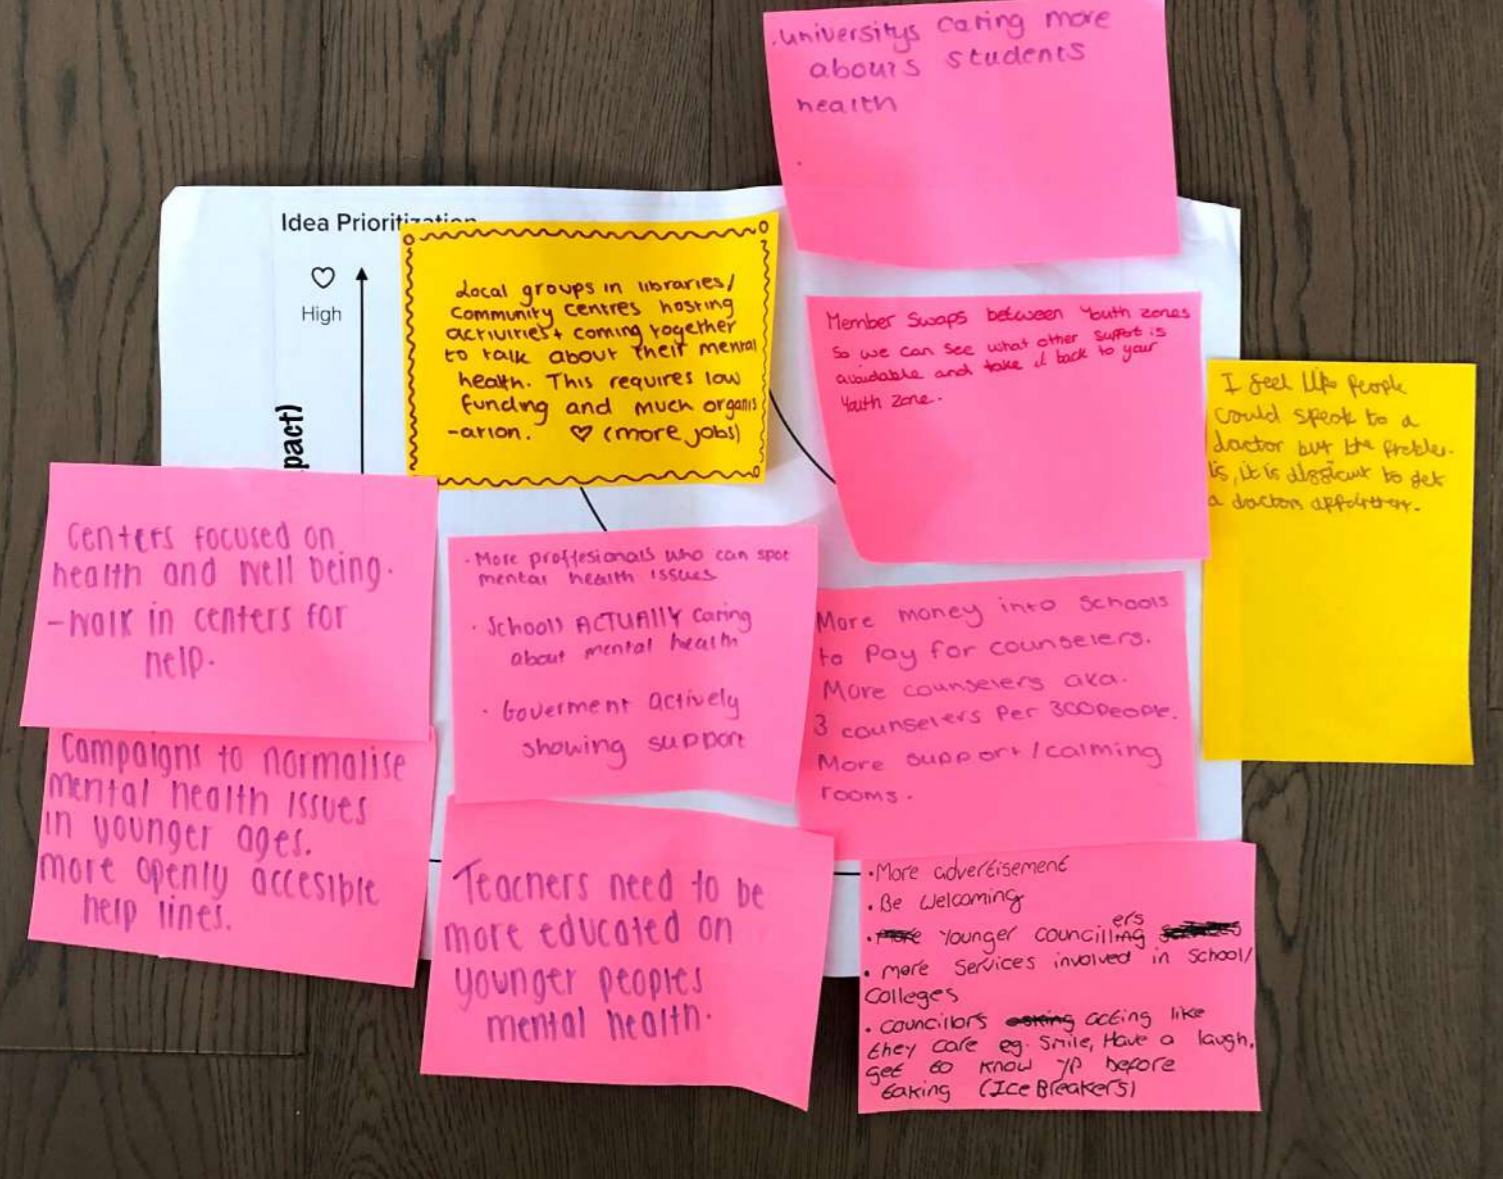 .universitys caring more
abours students
health
Idea Prioritization
High
pact)
Local groups in libraries/
community centres hosting
activities + coming together
to talk about their mental
health. This requires low
funding and much organis
-ation. ♡ (more jobs)
Member Swaps between Youth zones
So we can See what other support is
avaidable and take it back to your
Youth Zone.
I feel like people
could speak to a
doctor but the
is, it is difficult to get
a doctors
Centers focused on
health and well being.
-walk in centers for
help.
· More proffesionals who can spot
mental health issues
· Schools ACTUALLY caring
about mental health
· Goverment actively
showing support
More money into Schools
to Pay for counselers.
More counselers aka.
3 counselers Per 300 people.
More support/calming
rooms.
Campaigns to normalise
mental health issues
in younger ages.
more openly accesible
help lines.
Teachers need to be
more educated on
younger peoples
mental health.
· More advertisement
· Be Welcoming
· Younger councillers
· more Services involved in School/
Colleges
· councillors acting like
they care eg. Smile, Have a laugh,
get to know YP before
taking (Ice Breakers)